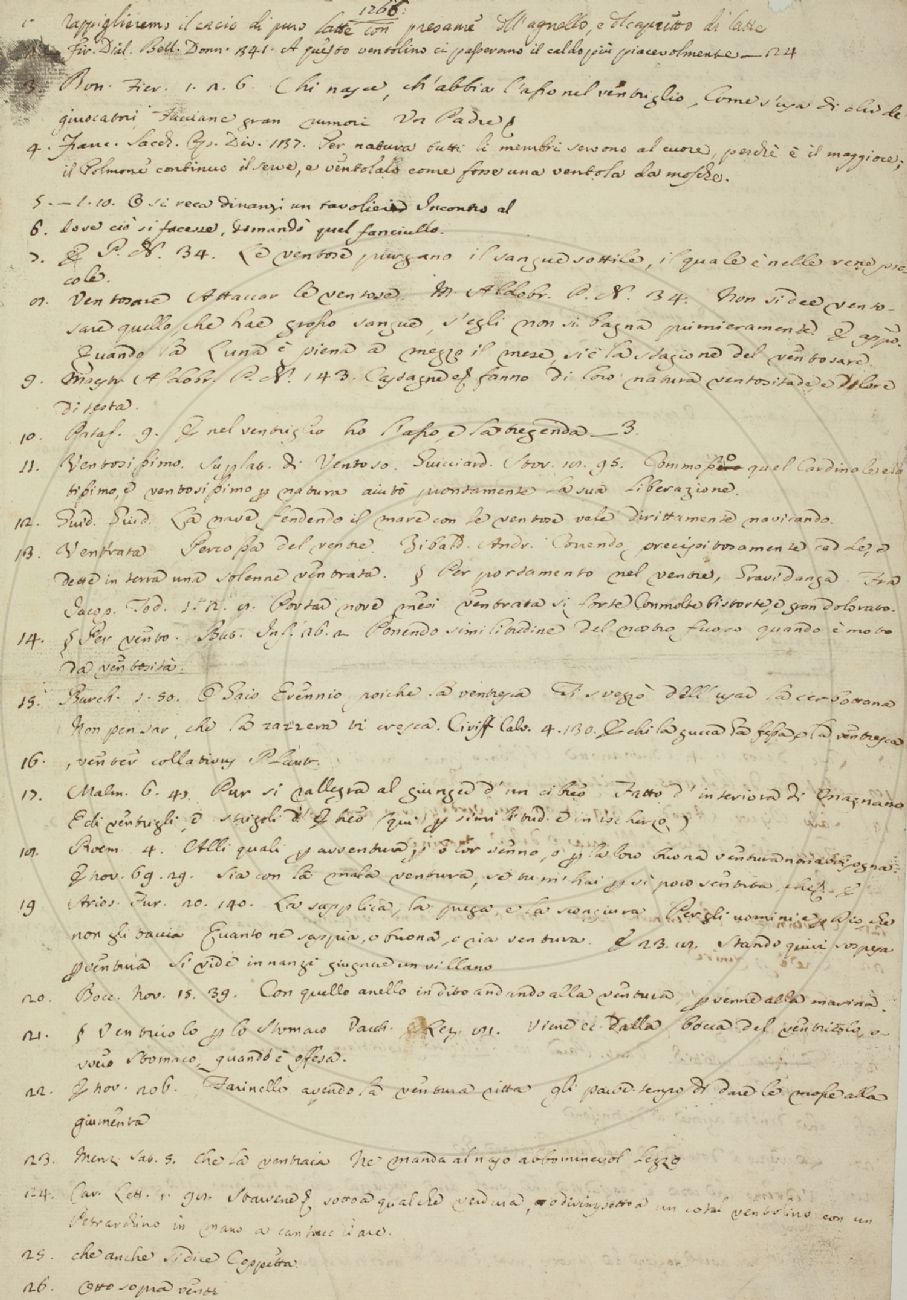 1266.
1. rappiglieremo il cacio di puro latte con presame d'agnello, e di capretto di latte
2. Fir. Dial. Bell. Donn. 341. A questo ventolino ci passeranno il caldo più piacevolmente — 24
3. Bon. Fier. 1. 2. 6. Chi nasce, ch'abbia l'asso nel ventriglio, Come s'usa di dir de
giuocatori, Facciane gran rumori Un Padre
4. Franc. Sacch. Op. Div. 1137. Per natura tutti li membri servono al cuore, perchè è il maggiore;
il Polmone continuo il serve, e ventolalo come fosse una ventola da mosche.
5. — 1. 10. E si reca dinanzi un tavoliere Incontro al
6. dove ciò si facesse, domandò quel fanciullo.
7. P. N. 34. Le ventose purgano il sangue sottile, il quale è nelle vene pic
cole.
8. Ventosare Attaccar le ventose. M. Aldobr. P. N. 34. Non si dee vento-
sare quello, che hae grosso sangue, s'egli non si bagna primieramente E appo.
Quando la Luna è piena a mezzo il mese, si è la stagione del ventosare
9. Maestr. Aldobr. P. N. 143. Castagne fanno di loro natura ventositade e Dolore
di testa.
10. Pataf. 9. E nel ventriglio ho l'asso, e la tregenda — 3.
11. Ventosissimo. Superlat. di Ventoso. Guicciard. Stor. 18. 95. Commosso quel Cardinale
tissimo, e ventosissimo p natura aiutò prontamente la sua liberazione.
12. Guid. Guid. La nave fendendo il mare con le ventose vele dirittamente navicando.
13. Ventrata Percossa del ventre. Zibald. Andr. Correndo precipitosamente cadde, e
dette in terra una solenne ventrata. § Per portamento nel ventre, Gravidanza. Fra
Jacop. Tod. Portai nove mesi ventrata si forte Con molte bistorte, e gran dolorato.
14. § Per vento. But. Inf. 26. 2. Ponendo similitudine del nostro fuoco quando è moto
da ventosità.
15. Burch. 1. 50. O Gaio Erennio, poiche la ventresca Ti svezzò dell'usar la cerbottana
Non pensar, che la zazzera ti cresca. Ciriff. Calv. 4. 130. E chi la zucca ha fessa, e la ventresca
16. , venter collativus Plaut.
17. Malm. 6. 49. Pur si rallegra al giunger d'un cibreo Fatto d'interiora di Magnano
E di ventrigli, e strigoli (qui p similitud. e in ischerzo)
18. Rvem. 4. Alli quali p avventura, o lor senno, o p la loro buona ventura non abbisogna.
E nov. 69. 29. Sia con la mala ventura, se tu m'hai p sì poco sentita, che
19 Arios. Fur. 20. 140. La supplica, la prega, e la scongiura Per gli uomini, e p Dio, che
non gli taccia Quanto ne sappia, o buona, o ria ventura. E 23. Stando quivi sospesa
p ventura si vide innanzi giugnere un villano
20. Bocc. Nov. 15. 39. Con quello anello in dito andando alla ventura, pervenne alla marina.
21. § Ventricolo p lo Stomaco Viene ei dalla bocca del ventricolo, o
vero Stomaco, quando è offesa.
22. E nov. 206. Farinello avendo la ventura ritta gli parve tempo di dare le mosse alla
giumenta
23. Menz. Sat. 5. Che la ventraia Ne manda al naso abbominevol lezzo
24. Car. Lett. 1. Starvene sotto a qualche verdura, o dirimpetto a un cotal ventolino con un
Petrarchino in mano a cantacchiare.
25. che anche si dice Coppetta.
26. Otto sopra venti